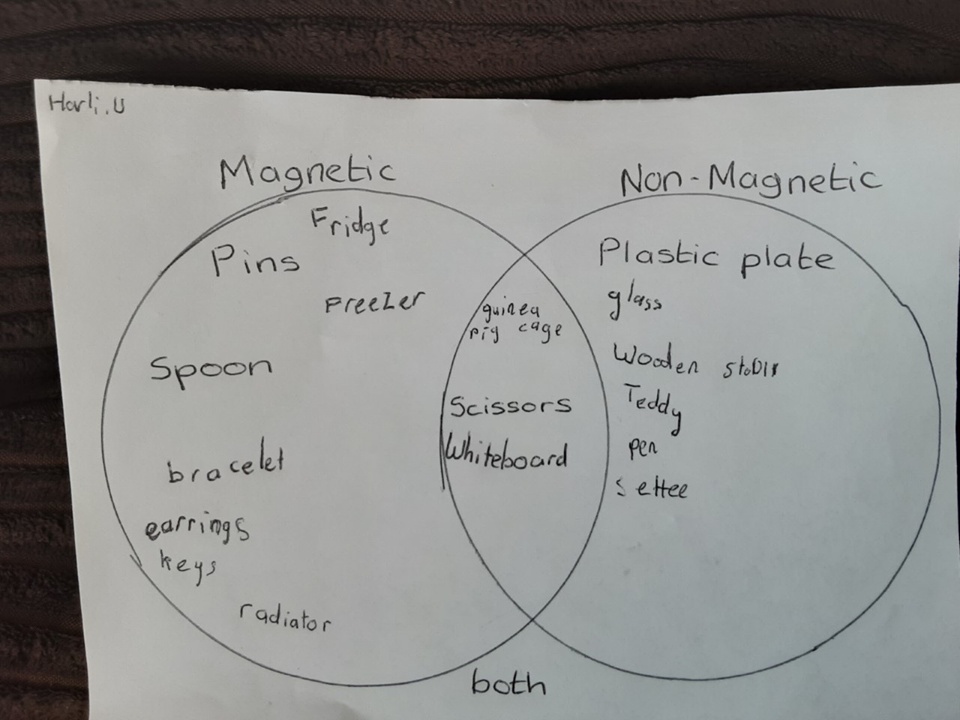 Harli.U
Magnetic
Fridge
Pins
Freezer
Spoon
bracelet
earrings
keys
radiator
guinea
pig cage
Scissors
Whiteboard
both
Non-Magnetic
Plastic plate
glass
Wooden
Teddy
pen
settee